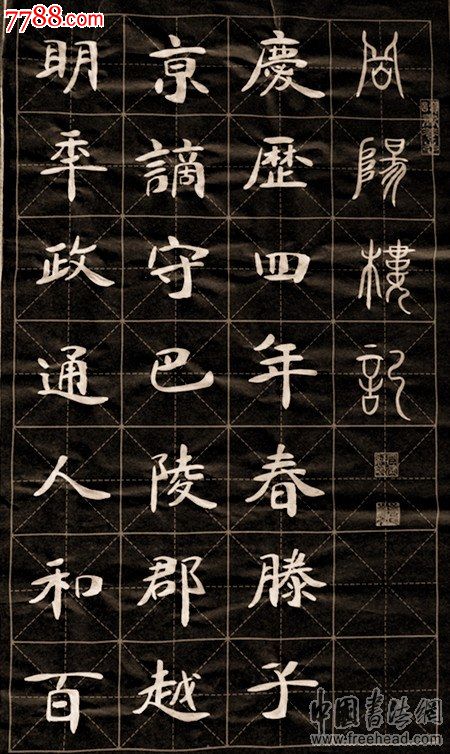 7788.com
岳陽樓記
慶歷四年春滕子
京謫守巴陵郡越
明秊政通人和百
中國書法網
www.freehead.com